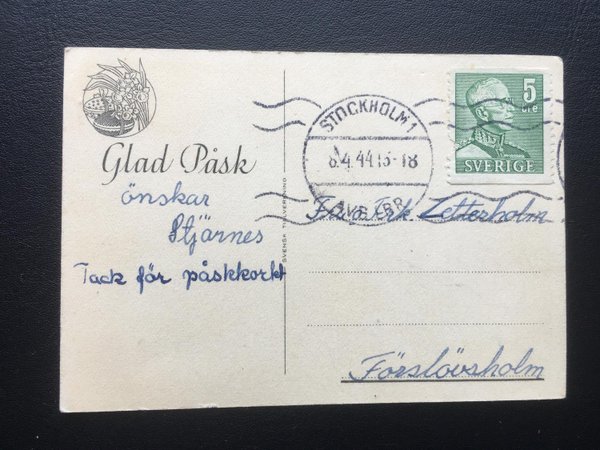 Glad Påsk
önskar
Stjärnes
Tack för påskkorkt
SVENSK TILLVERKNING
STOCKHOLM 1
8.4.44 15-18
AVG. LBR.
5
öre
SVERIGE
Fam. Erik Zetterholm
Förslövsholm